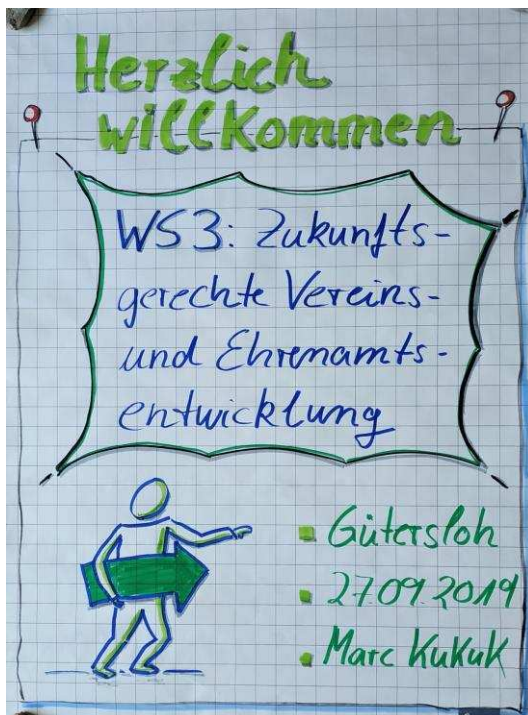 Herzlich
willkommen
WS3: Zukunfts-
gerechte Vereins-
und Ehrenamts-
entwicklung
Gütersloh
27.09.2019
Marc Kukuk